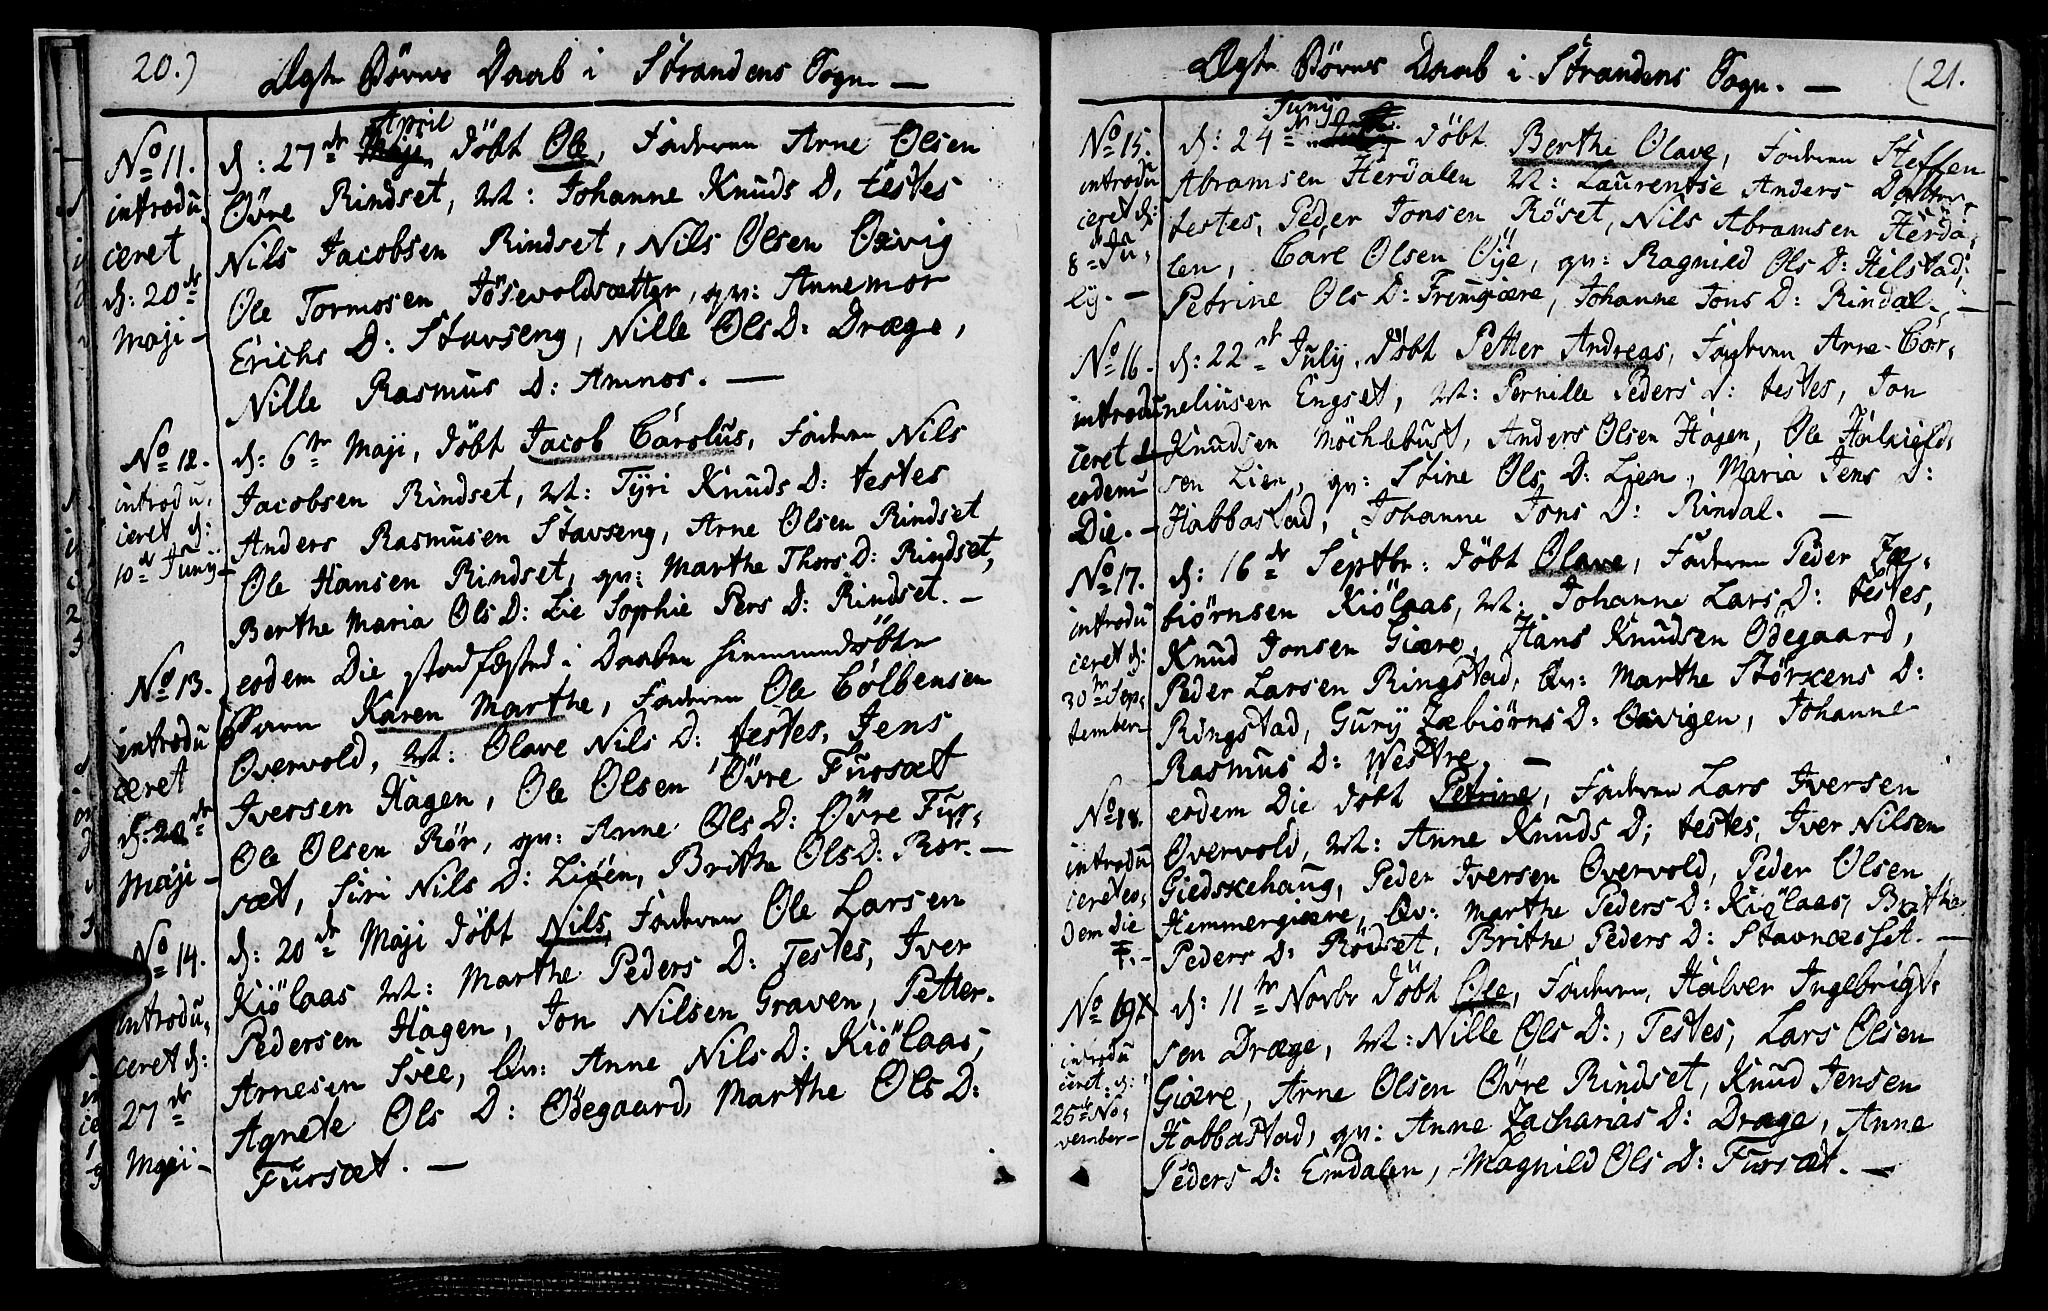 20.)
Ægte Börns Daab i Strandens Sogn. —
No 11.
introdu
ceret
d: 20de
Maji —
April
d: 27de Maji, döbt Ole, Faderen Arne Olsen
Øvre Rindset, M: Johanne Knuds D, testes
Nils Jacobsen Rindset, Nils Olsen Oxvig
Ole Tormosen Jösevoldsætter, qv: Annemor
Erichs D: Stavseng, Nille Ols D: Dræge,
Nille Rasmus D: Amnos. —
No 12.
introdu,
ceret d:
10de Junij —
d: 6te Maji, döbt Jacob Carolus, Faderen Nils
Jacobsen Rindset, M: Tyri Knuds D: testes
Anders Rasmusen Stavseng, Arne Olsen Rindset
Ole Hansen Rindset, qv: Marthe Thors D: Rindset,
Berthe Maria Ols D: Lie Sophie Pers D: Rindset. —
No 13.
introdu
ceret
d: 20de
Maji —
eodem Die stadfæsted i Daaben hiemmedöbte
Barn Karen Marthe, Faderen Ole Colbensen
Overvold, M: Olave Nils D: testes, Jens
Iversen Hagen, Ole Olsen Øvre Fursæt
Ole Olsen Rör, qv: Anne Ols D: Øvre Fur,
sæt, Siri Nils D: Liöen, Brithe Ols D: Rör. —
No 14.
introdu,
ceret d:
27de
Maji —
d: 20de Maji döbt Nils, Faderen Ole Larsen
Kiölaas M: Marthe Peders D: Testes, Iver
Pedersen Hagen, Jon Nilsen Graven, Petter
Arnesen Svee, Qv: Anne Nils D: Kiölaas,
Agnete Ols D: Ödegaard, Marthe Ols D:
Fursæt. —
Ægte Börns Daab i Strandens Sogn. —
(21.
No 15.
introdu
ceret d:
8de Ju,
ly. —
Juny
d: 24de döbt Berthe Olave, Faderen Steffen
Abramsen Herdalen M: Laurentse Anders Datter,
testes, Peder Jonsen Röset, Nils Abramsen Herda,
len, Carl Olsen Öije, qv: Ragnild Ols D: Helstad,
Petrine Ols D: Fremgiære, Johanne Jons D: Rindal. —
No 16.
introdu
ceret
eodem
Die. —
d: 22de July, döbt Petter Andreas, Faderen Arne Cor,
neliusen Engset, M: Pernille Peders D: testes, Jon
Knudsen Möchlebust, Anders Olsen Hagen, Ole Halkield,
sen Lien, qv: Stine Ols D: Lien, Maria Jens D:
Habbastad, Johanne Jons D: Rindal. —
No 17.
introdu
ceret d:
30te Sep,
tember
d: 16de Septbr: döbt Olave, Faderen Peder Zæ,
biörnsen Kiölaas, M: Johanne Lars D: testes,
Knud Jonsen Giære, Hans Knudsen Ödegaard,
Peder Larsen Ringstad, Qv: Marthe Störxens D:
Ringstad, Gury Zæbiörns D: Oxvigen, Johanne
Rasmus D: Westre. —
No 18.
introdu
ceret eo,
dem die
eodem Die döbt Petrine, Faderen Lars Iversen
Overvold, M: Anne Knuds D; testes, Iver Nilsen
Giedskehaug, Peder Iversen Overvold, Peder Olsen
Hemmergiære, Qv: Marthe Peders D: Kiölaas, Brithe
Peders D: Rödset, Brithe Peders D: Stavnæsset. —
No 19
introdu
ceret d:
25de No,
vember —
d: 11te Novbr döbt Ole, Faderen, Halver Ingebrigt,
sen Dræge, M: Nille Ols D:, Testes, Lars Olsen
Giære, Arne Olsen Øvre Rindset, Knud Jensen
Habbastad, qv: Anne Zacharias D: Dræge, Anne
Peders D: Emdalen, Magnild Ols D: Fursæt. —